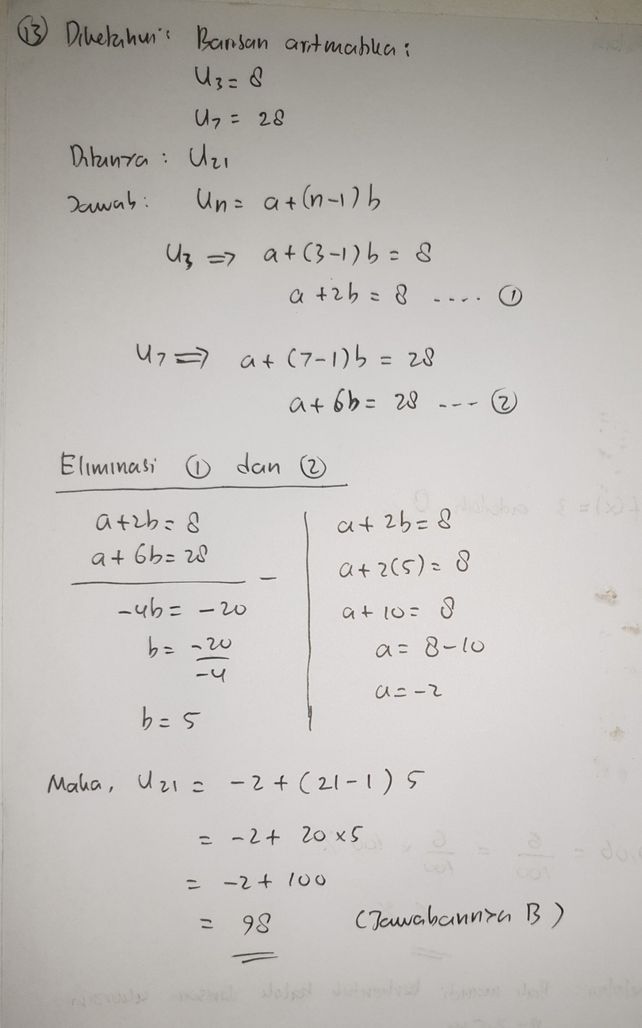 13 Diketahui : Barisan aritmatika :
U3 = 8
U7 = 28
Ditanya : U21
Jawab : Un = a + (n-1) b
U3 => a + (3-1) b = 8
a + 2b = 8 .... 1
U7 => a + (7-1) b = 28
a + 6b = 28 --- 2
Eliminasi 1 dan 2
a + 2b = 8
a + 6b = 28 -
-4b = -20
b = -20/-4
b = 5
a + 2b = 8
a + 2(5) = 8
a + 10 = 8
a = 8 - 10
a = -2
Maka, U21 = -2 + (21-1) 5
= -2 + 20 x 5
= -2 + 100
= 98 (Jawabannya B)